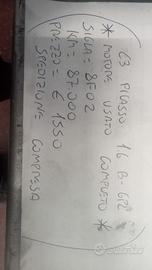 C3 PICASSO 16 B-GPL
* MOTORE USATO COMPLETO *
SIGLA = 8F02
KM = 87.000
PREZZO = € 1550
SPEDIZIONE COMPRESA
subito